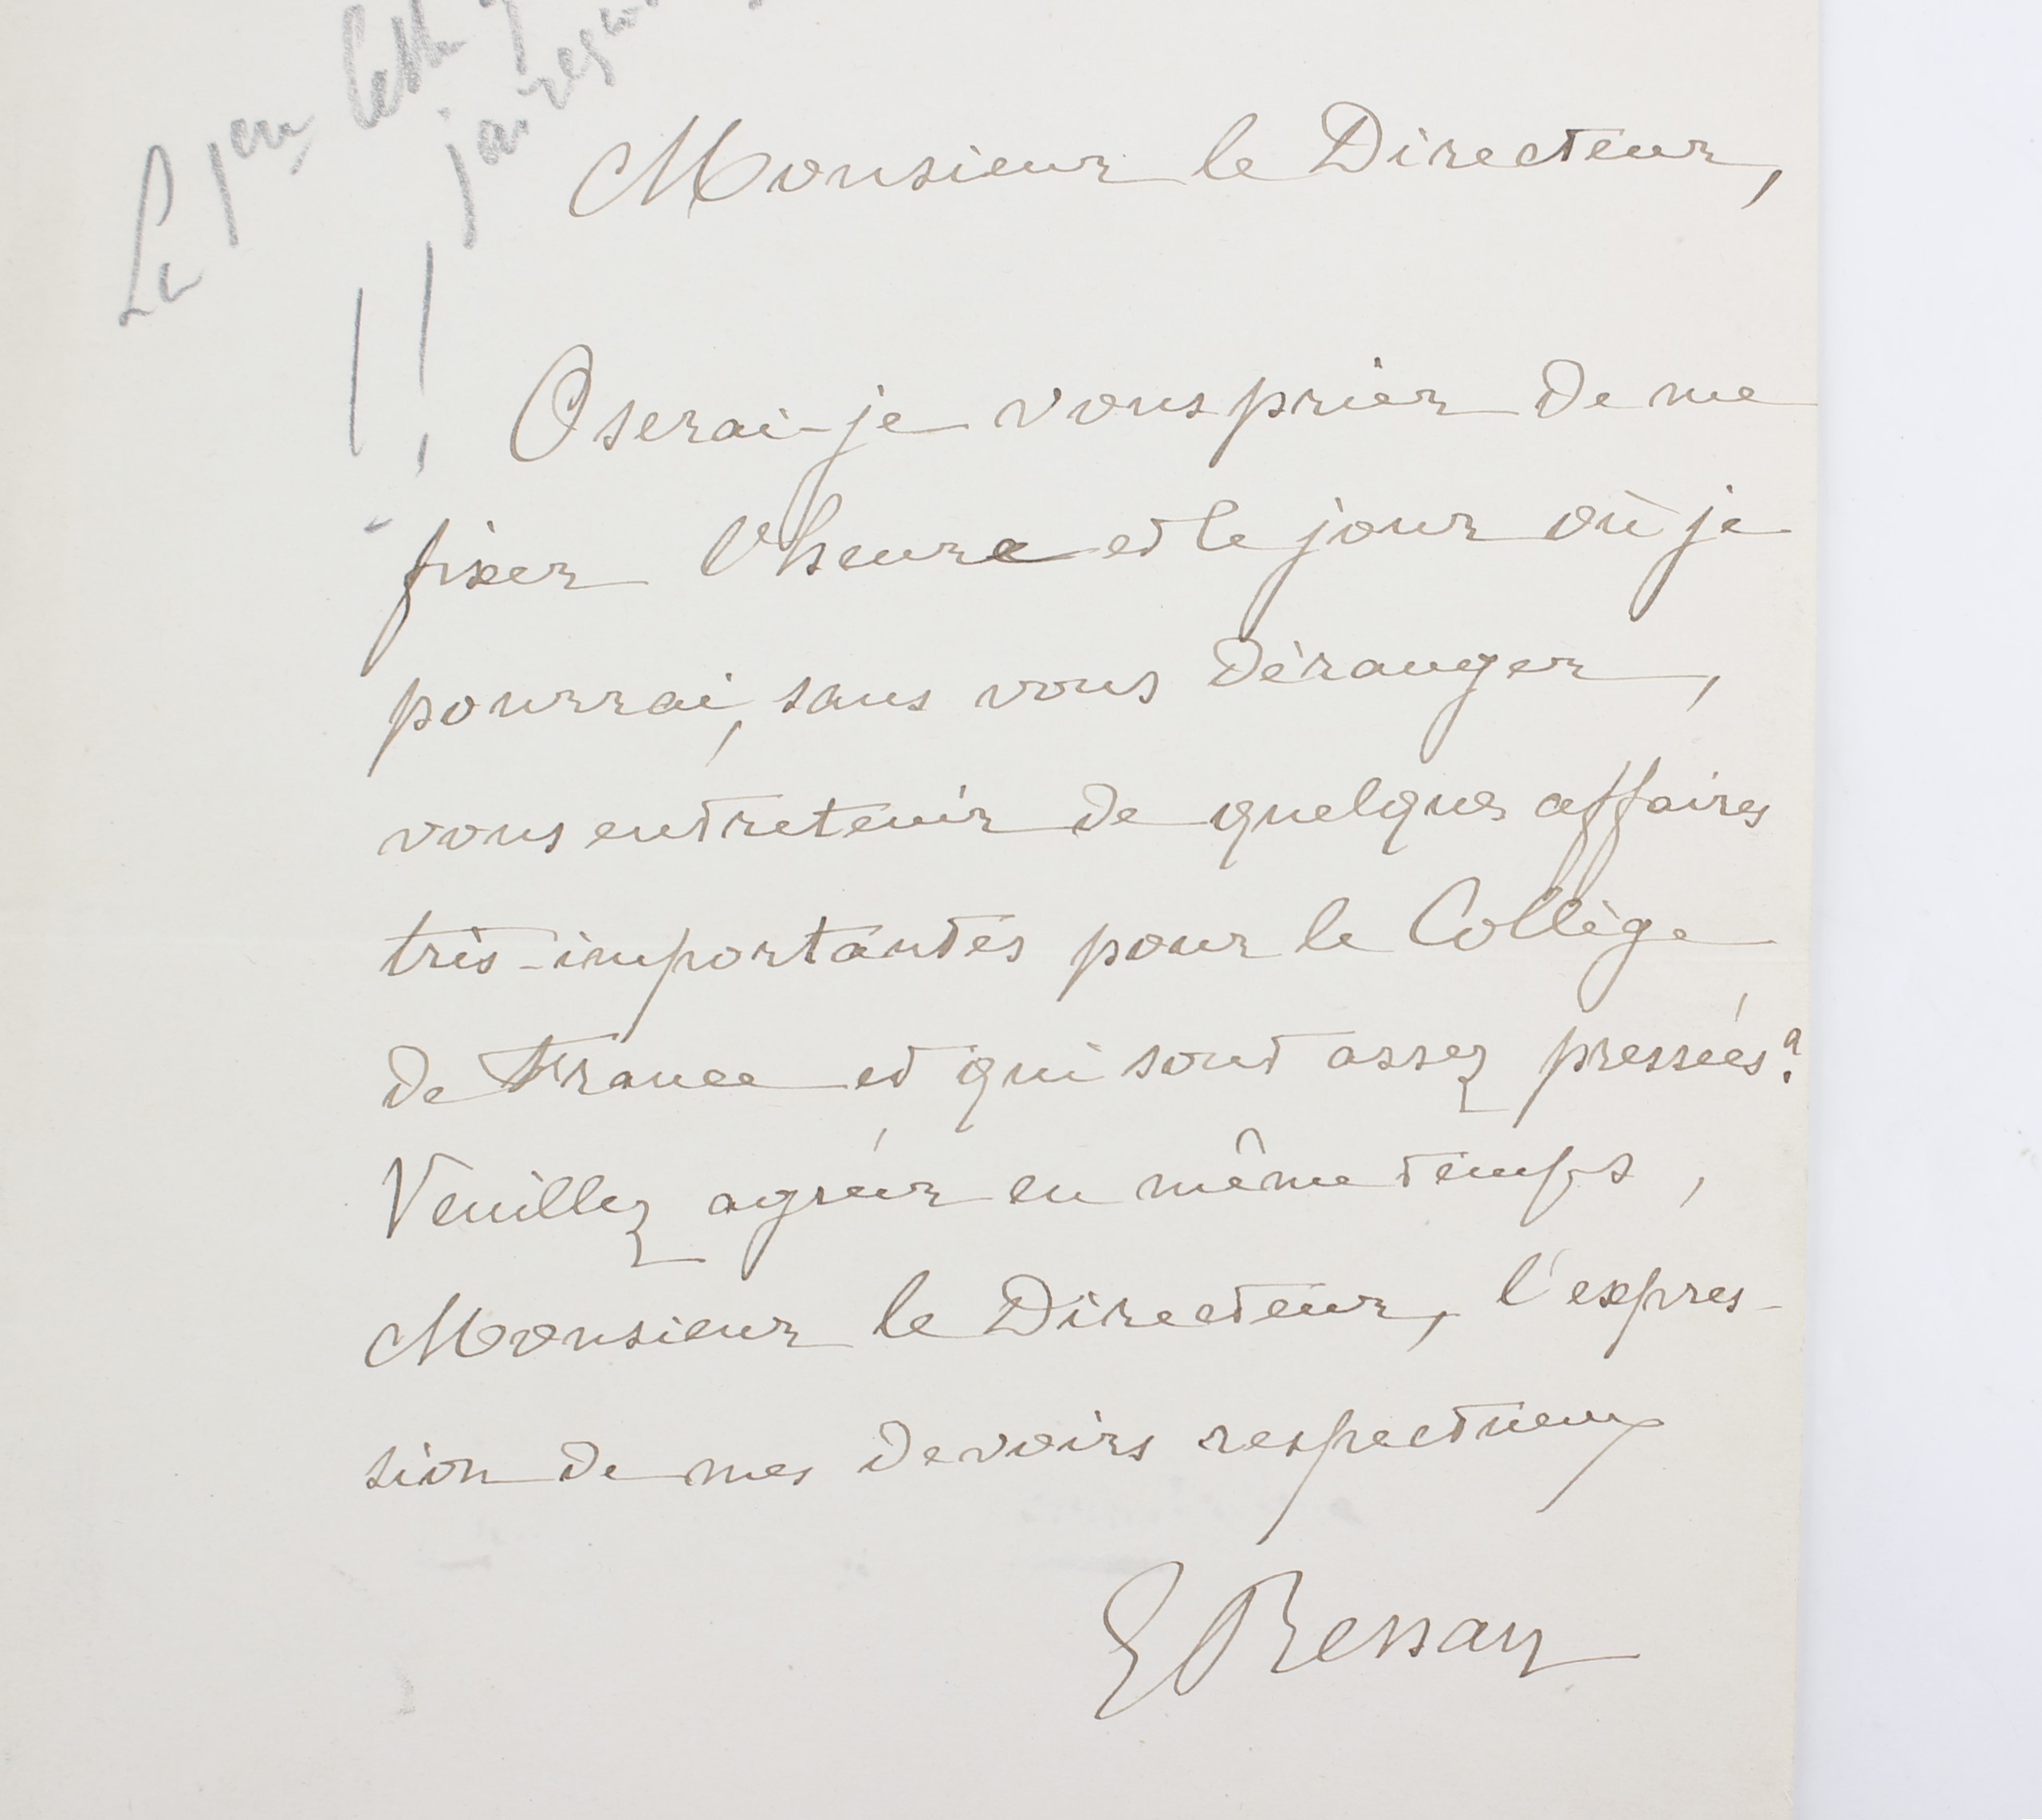 Monsieur le Directeur,
Oserai-je vous prier de me
fixer l'heure et le jour où je
pourrai, sans vous déranger,
vous entretenir de quelques affaires
très-importantes pour le Collège
de France et qui sont assez pressées?
Veuillez agréer en même temps,
Monsieur le Directeur, l'expres-
sion de mes devoirs respectueux
E Renan